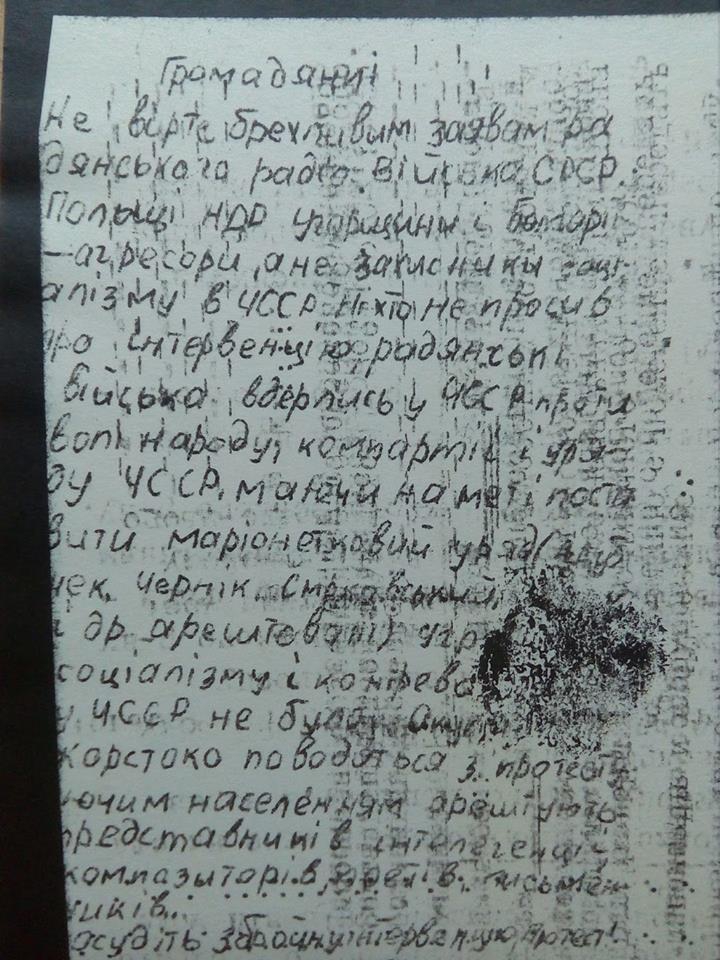 Громадяни!
Не вірте брехливим заявам ра
дянського радіо. Війська СРСР.
Польщі НДР угорщини і Болгарії
—агресори, а не захисники соці
алізму в ЧССР Ніхто не просив
про інтервенцію, радянські
війська вдерлись у ЧССР проти
волі народу, компартії і уря-
ду ЧССР, маючи на меті поста
вити маріонетковий уряд (Дуб
чек, Чернік, Смрковський,
і др арештовані)
соціалізму і контрево
у ЧССР не було.
жорстоко поводяться з протесту
ючим населенням арештують
представників інтелегенції
композиторів, поетів. письмен
ників..
асудіть збройну інтервенцію, протест!